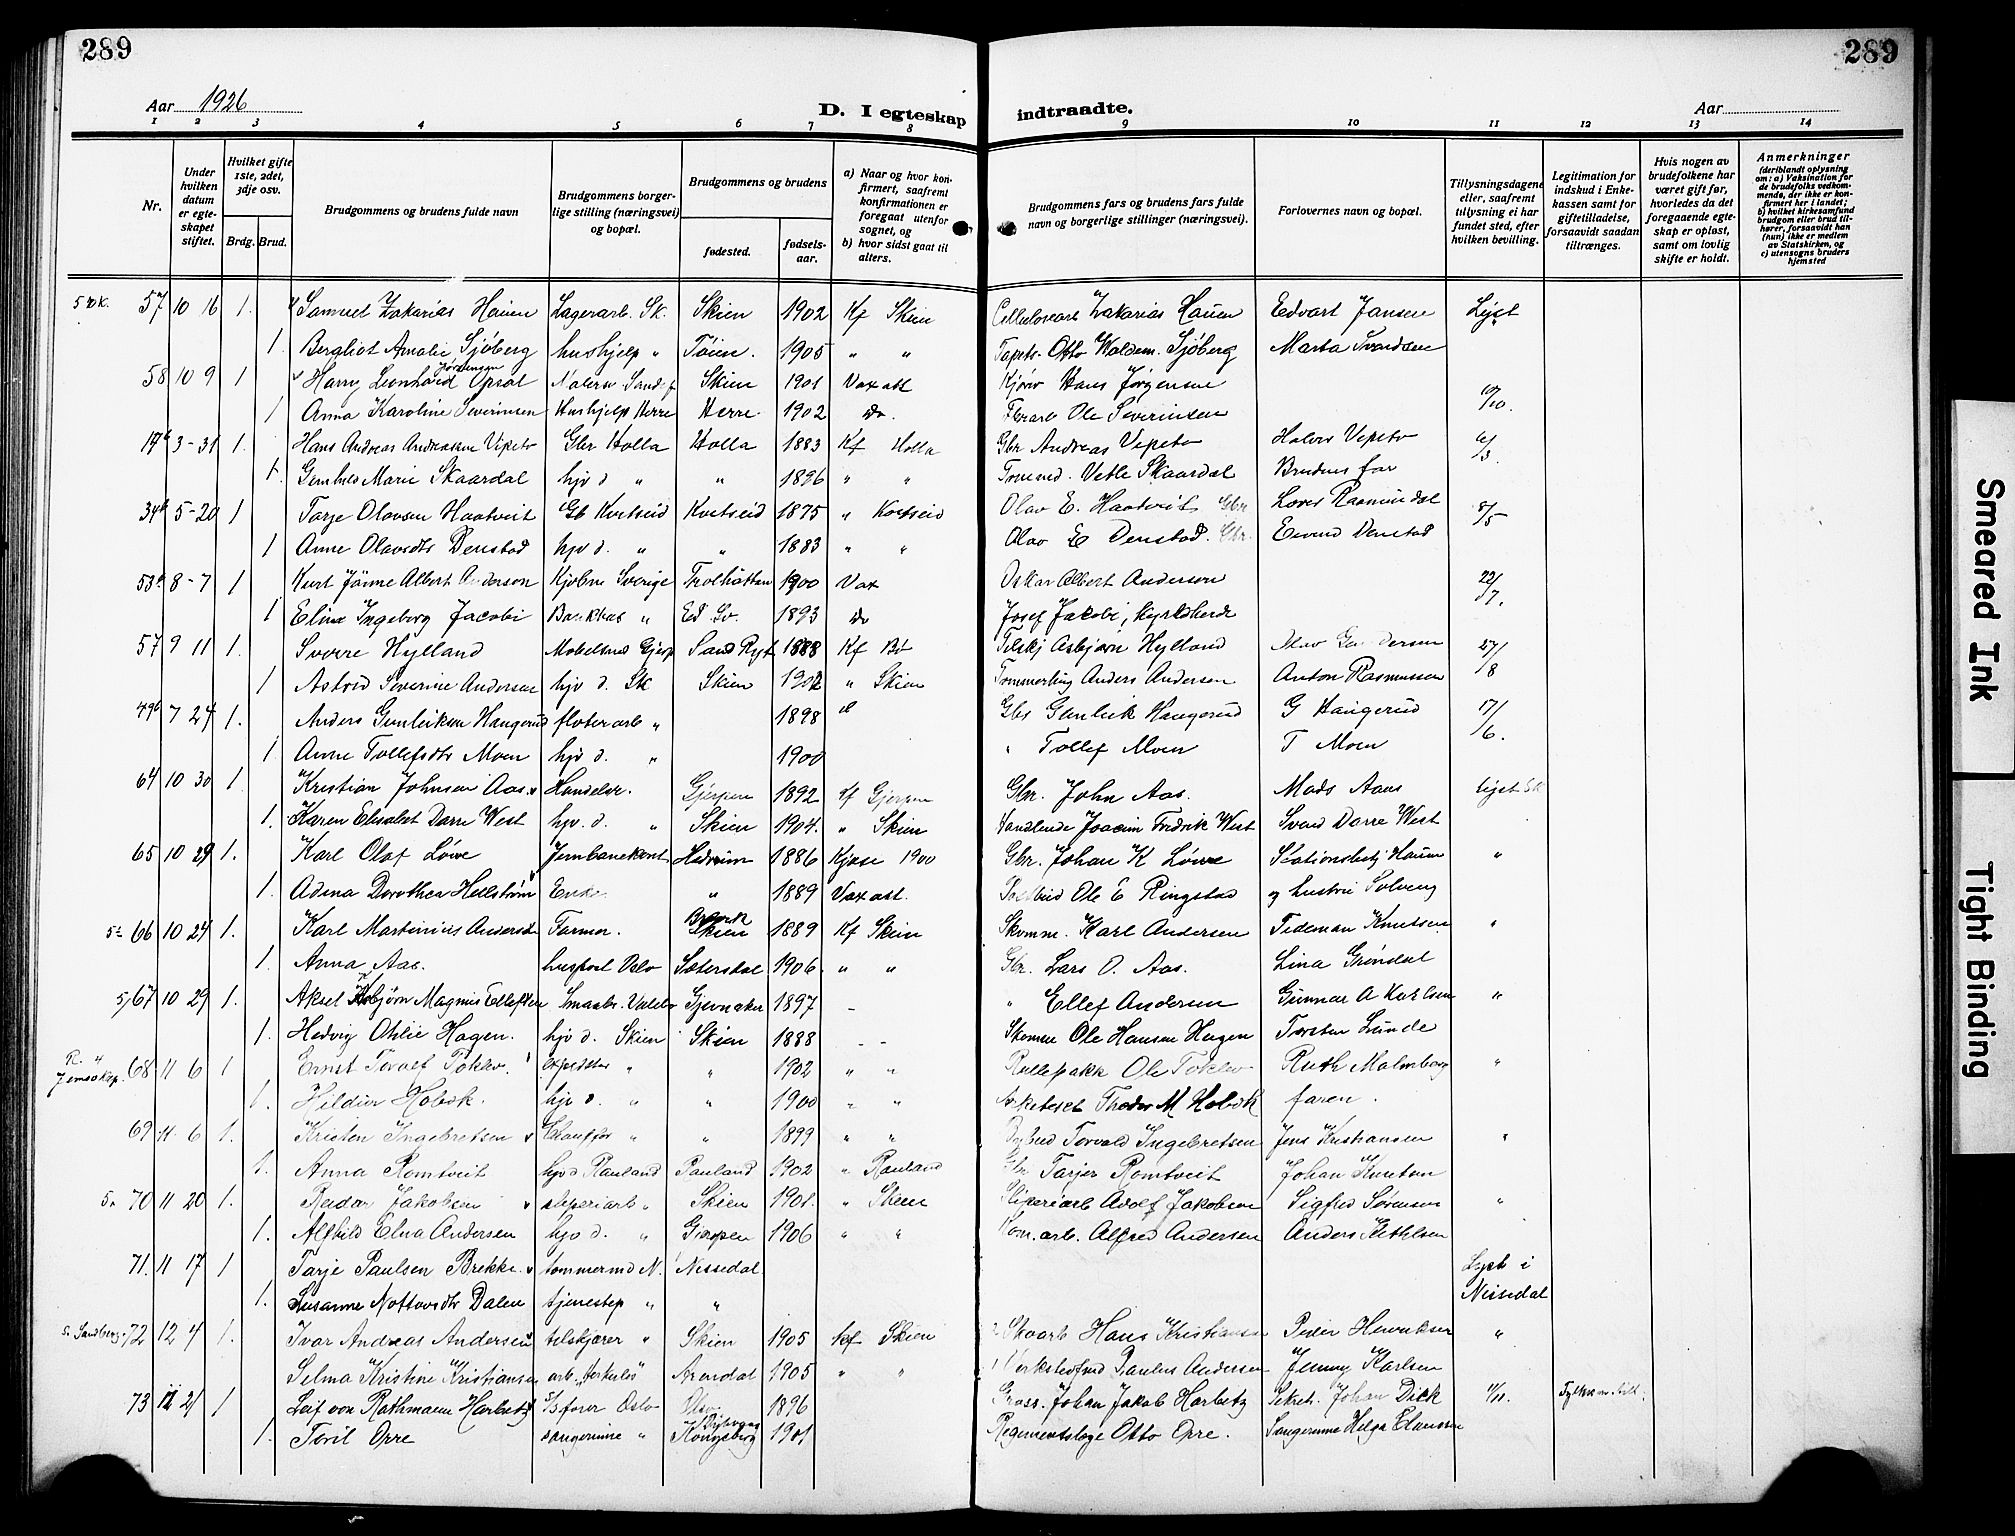 289
289
Aar 1926
D. I egteskap indtraadte.
Aar
1 2 3 4 5 6 7 8 9 10 11 12 13 14
Nr.
Under hvilken datum er egteskapet stiftet.
Hvilket gifte 1ste, 2det, 3dje osv.
Brdg. Brud.
Brudgommens og brudens fulde navn
Brudgommens borgerlige stilling (næringsvei) og bopæl.
Brudgommens og brudens
fødested.
fødselsaar.
a) Naar og hvor konfirmert, saafremt konfirmationen er foregaat utenfor sognet, og b) hvor sidst gaat til alters.
Brudgommens fars og brudens fars fulde navn og borgerlige stillinger (næringsvei).
Forlovernes navn og bopæl.
Tillysningsdagene eller, saafremt tillysning ei har fundet sted, efter hvilken bevilling.
Legitimation for indskud i Enkekassen samt for giftetilladelse, forsaavidt saadan tiltrænges.
Hvis nogen av brudefolkene har været gift før, hvorledes da det foregaaende egteskap er opløst, samt om lovlig skifte er holdt.
Anmerkninger (deriblandt oplysning om: a) Vaksination for de brudefolks vedkommende, der ikke er konfirmert her i landet; b) hvilket kirkesamfund brudgom eller brud tilhører, forsaavidt han (hun) ikke er medlem av Statskirken, og c) utensogns bruders hjemsted
57 10 16 1. Samuel Zakarias Hauen Lagerarb. Sk. Skien 1902 Kf Skien Zakarias Hauen Edvart Jansen Lyst
1. Bergliot Amalie Sjöberg hushjelp " Töien. 1905 " " Otto Waldem. Sjöberg Marta Svendsen
58 10 9 1 Harry Leonhard Jörgensen Opsal Skien 1901 Vax att Hans Jørgensen
1 Anna Karoline Severinsen Hushjelp Herre Herre. 1902 Do. Ole Severinsen 10/10.
17b 3-31 1. Hans Andreas Andreassen Vipeto Gbr Holla Holla 1883 Kf Holla Gbr Andreas Vipeto Halvor Vipeto 6/3.
1. Marie Skaardal hjv d " " 1896 " " Vetle Skaardal Brudens far
34b 5-20 1 Tarje Olavsen Haatveit Gb Kvitseid Kvitseid 1875 " Kvitseid Olav E. Haatveit Gbr 8/5
1 Anne Olavsdtr Denstad hjv d. " " 1883 " " Olav E Denstad. Gbr. Eivind Denstad
53b 8-7 1 Kurt Albert Anderson Sverige Trolhättan 1900 Vax Oskar Albert Anderson 22/7.
1 Elina Ingeborg Jacobi " Ed Sv. 1893 Do Josef Jakobi, Kyrkoherde
57 9 11 1. Sverre Hylland Møbelsned Gjerp Sand Ryf 1888 Kf Bø Asbjørn Hylland Olav Gundersen 27/8
1 Astrid Severine Andersen hjv d. Sk Skien 1902 " Skien Anders Andersen Anton Rasmussen
49b 7 24 1. Anders Gunleiksen Haugerud fløterarb " 1898 Gbr Gunleik Haugerud G Haugerud 17/6.
1. Anne Tollefsdtr Moen hjv d. " 1900 " Tollef Moen T Moen
64 10 30 1. Kristian Johnsen Aas. Handelsr. Gjerpen 1892 Kf Gjerpen Gbr. John Aas. Mads Aas Lyst Sk
1. Karen Elisabet Darre West hjv. d. " Skien 1904. " Skien Handlende Joacim Fredrik West Svend Darre West
65 10 29 1. Karl Olaf Løwe Jernbanekont Hedrum 1886 Kjose 1900 Gbr. Johan K Løwe Stationsbetj Hauen "
1. Adina Dorothea Hellström Enke. " 1889 Vax att. Ole E Ringstad og hustru Solveig
66 10 24 1. Karl Martinius Andersen Farmer. Brevik Skien 1889 Kf Skien Skomm. Karl Andersen Tideman Knutsen "
1. Anna Aas. huspost Sætersdal 1906. " " Gbr. Lars O. Aas. Lina Grøndal
67 10 29 1. Aksel Asbjørn Magnus Ellefsen Gjevnaker 1897 - " Ellef Andersen Gunnar A Karlsen "
1. Hedvig Otilie Hagen. hjv d. Skien Skien 1888 - - Ole Hansen Hagen Torsten Lunde
68 11 6 1 Ernst Torolf Toklev. expeditør " " 1902 " " Ole Toklev Ruth Malmberg "
1. Hildur Holvik. hjv d. " " 1900 " " Arkitekt Thodor M Holvik faren.
69 11. 6 1. Kristen Ingebretsen Chauffør " " 1899 " " Torvald Ingebretsen Jens Kristiansen "
1. Anna Romtveit hjv d Rauland Rauland 1902 " Rauland Gbr Tarjer Romtveit Johan Knutsen
70 11 20 1. Reidar Jakobsen sliperiarb " Skien 1901. " Skien Sliperiarb Adolf Jakobsen Sigfred Sørensen "
1. Alfhild Elna Andersen hjv d. " Gjerpen 1906 " " Kom. arb. Alfred Andersen Anders Ketilsen
71. 11 17 1 Tarje Paulsen Brekke. tømmermd N. Nissedal Lyst i Nissedal
1. Susanne Nottovsdtr Dalen tjenestep " "
72 12 4 1. Ivar Andreas Andersen tilskjærer " Skien 1905 Kf Skien Hans Kristiansen Peder Henriksen "
Selma Kristine Kristiansen Arendal 1905 " " Paulus Andersen Jenny Karlsen
73 11 21 1 Leif von Rathmann Harbitz Oslo Oslo. 1896 Gross. Johan Jakob Harbitz Sekret. Johan Dick 11/11.
1. Toril Orre sangerinne " Kongsberg 1901 Regimentslæge Otto Orre. Sangerinne Helga Clausson
Smeared Ink
Tight Binding